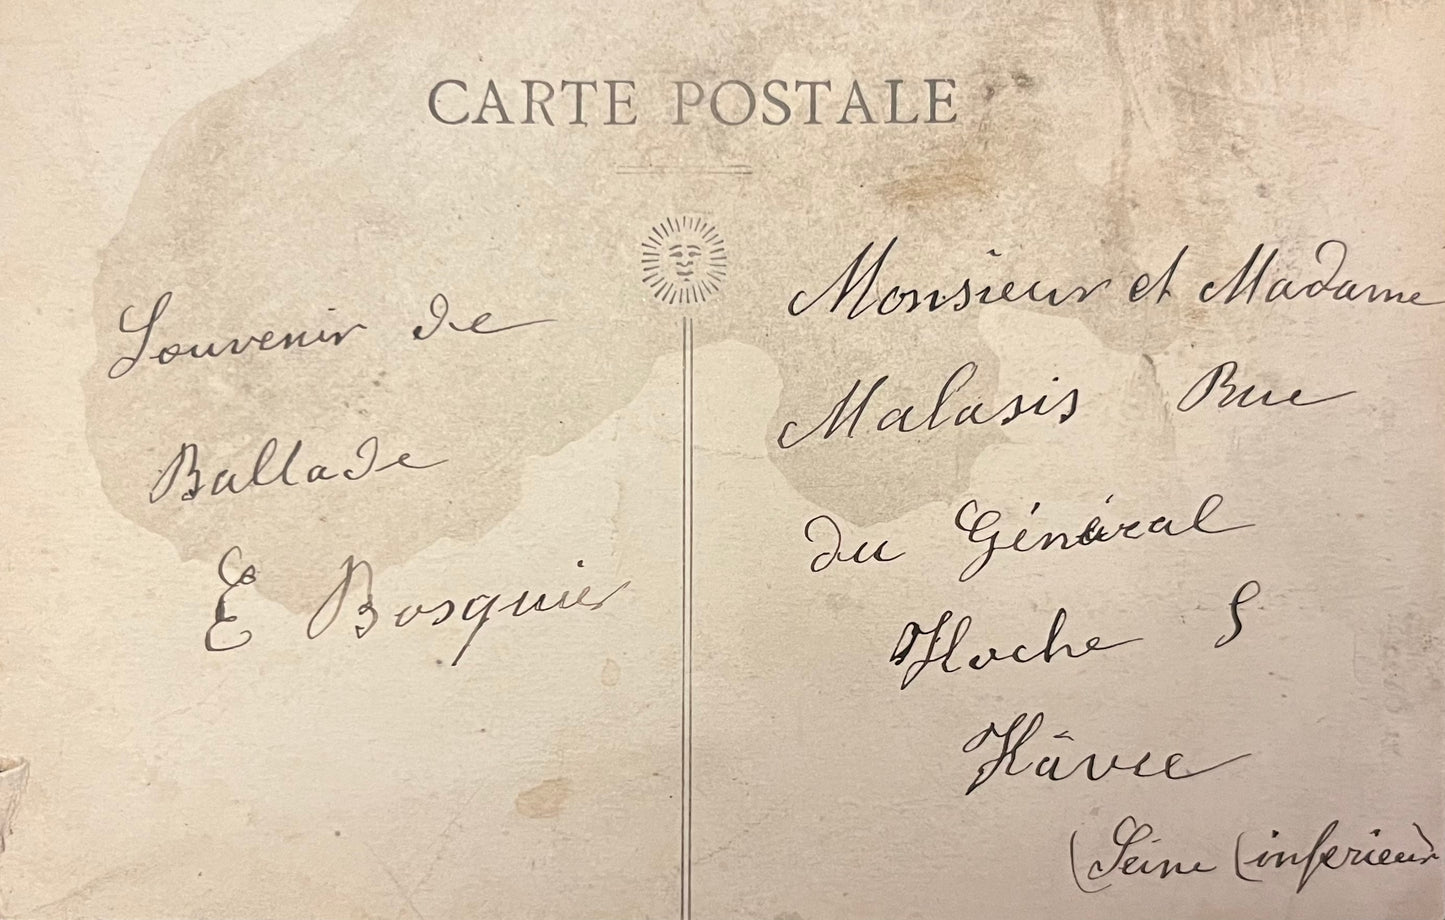 CARTE POSTALE
Souvenir de
Ballade
E Bosquier
Monsieur et Madame
Malasis Rue
du Général
Hoche 8
Hâvre
(Seine (inferieur)